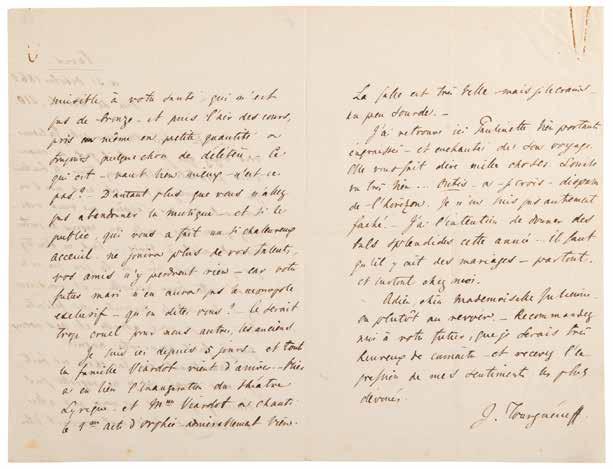 nuisible à votre santé, qui n'est
pas de bronze - et puis l'air des cours,
pris même en petite quantité a
toujours quelque chose de délétère. Ce
qui est - vaut bien mieux - n'est-ce
pas? - D'autant plus que vous n'allez
pas abandonner la musique - et si le
public, qui vous a fait un si chaleureux
accueil ne jouira plus de vos talents,
vos amis n'y perdront rien - car votre
futur mari n'en aura pas le monopole
exclusif - qu'en dites vous? - Ce serait
trop cruel pour nous autres, les anciens.
Je suis ici depuis 5 jours - et toute
la famille Viardot vient d'arriver. Hier
a eu lieu l'inauguration du théâtre
Lyrique - et Mme Viardot a chanté
le 1er acte d'Orphée admirablement bien.
La salle est très belle - mais je la crains
un peu sourde. -
J'ai retrouvé ici Paulinette bien portante,
engraissée - et enchantée de son voyage.
Elle vous fait dire mille choses.
va très bien ... a disparu
de l'horizon. Je n'en suis pas autrement
fâché - J'ai l'intention de donner des
bals splendides cette année - il faut
qu'il y ait des mariages - partout,
et surtout chez moi.
Adieu chère mademoiselle
ou plutôt au revoir. - Recommandez
moi à votre futur, que je serais très
heureux de connaître - et recevez l'ex
pression de mes sentiments les plus
dévoués.
J. Tourguéneff
Paris